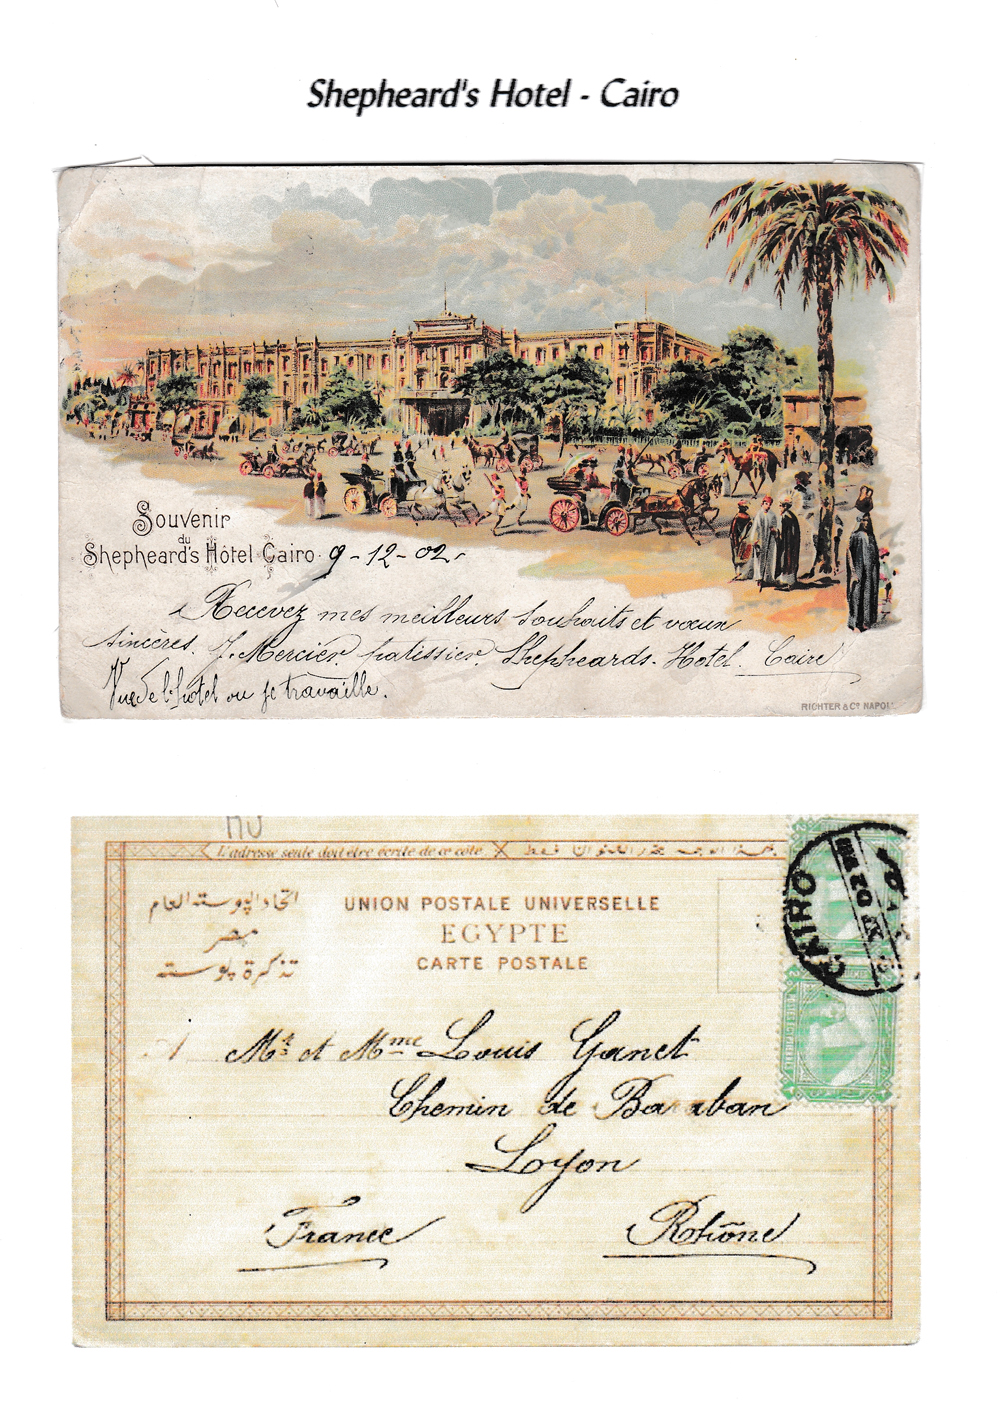 Shepheard's Hotel - Cairo
Souvenir
du
Shepheard's Hôtel Cairo 9-12-02
Recevez mes meilleurs souhaits et vœux
sincères. J. Mercier. patissier. Shepheards. Hotel. Caire
Vue de l'hotel ou je travaille.
RICHTER & Cº NAPOLI
MU
L'adresse seule doit être écrite de ce côté.
اتحاد البوسته العام
مصر
تذكرة بوسته
UNION POSTALE UNIVERSELLE
EGYPTE
CARTE POSTALE
CAIRO
Mr et Mme Louis Ganet
Chemin de Baraban
Lyon
France Rhône